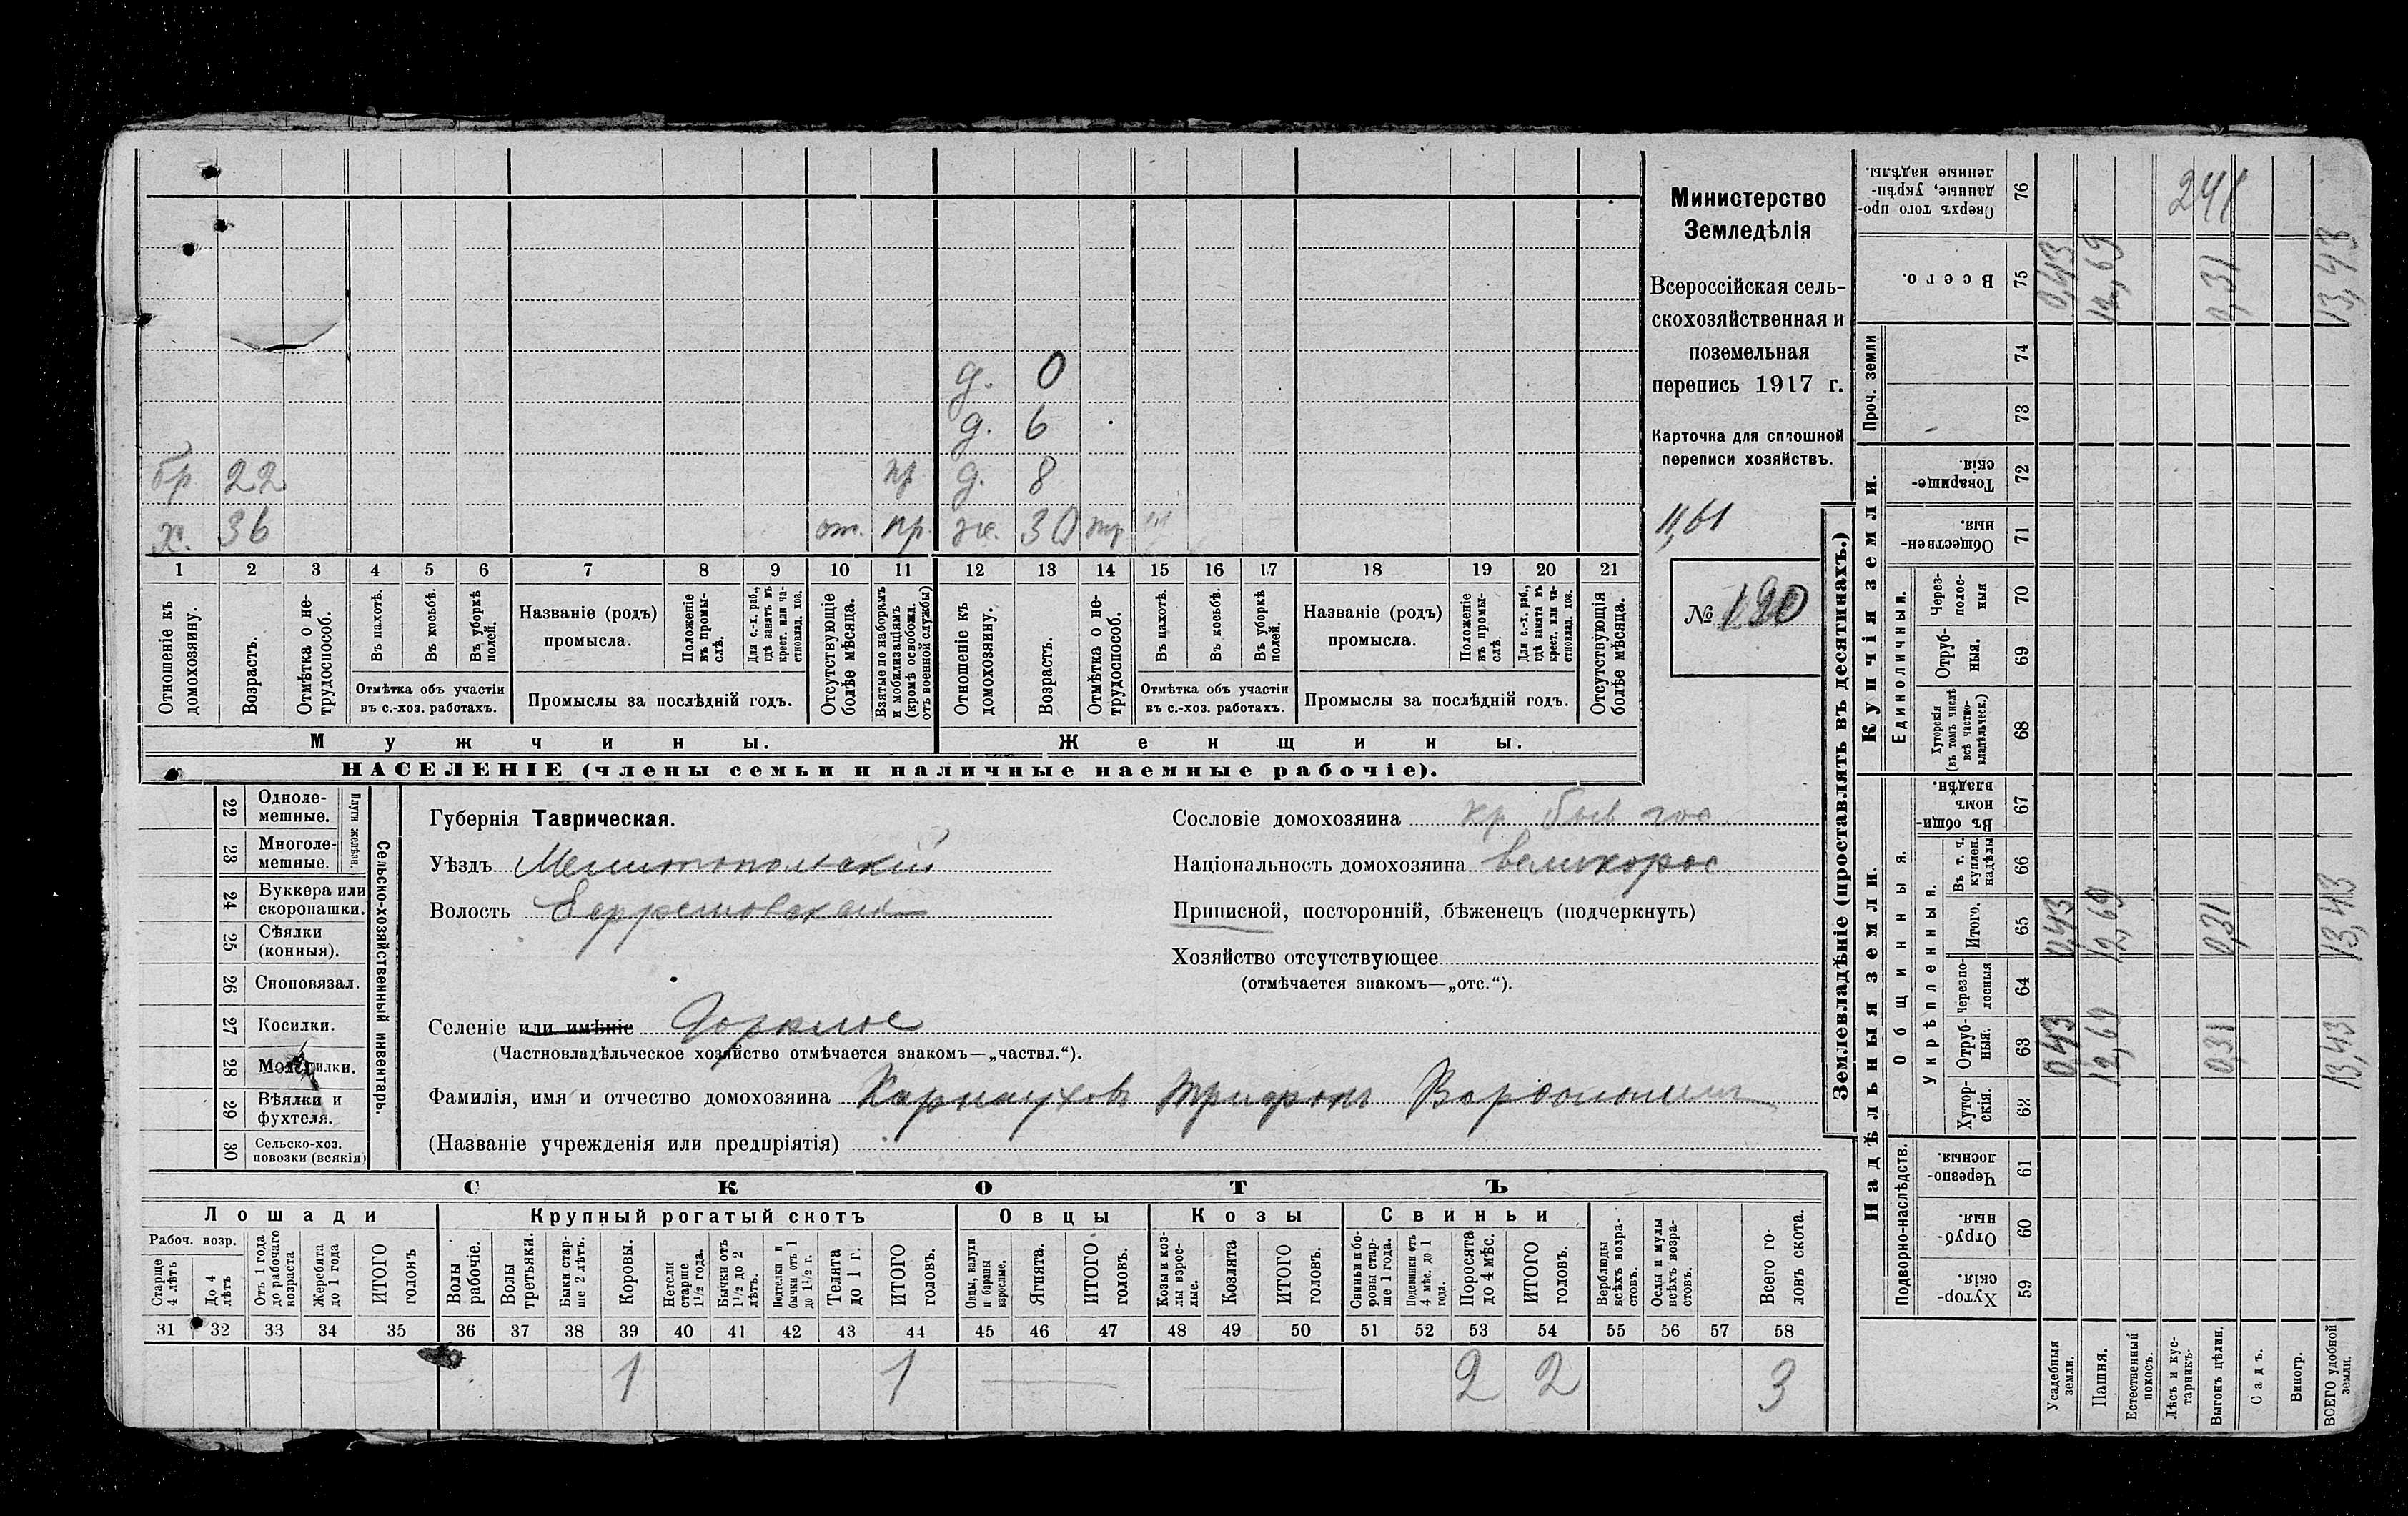 д. 0
д. 6
бр 22 пр. д. 8
х. 36 от. пр. ж. 30
1 2 3 4 5 6 7 8 9 10 11 12 13 14 15 16 17 18 19 20 21
Отношеніе къ домохозяину.
Возрастъ.
Отмѣтка о не-трудоспособ.
Въ пахотѣ.
Въ косьбѣ.
Въ уборкѣ полей.
Отмѣтка объ участіи въ с.-хоз. работахъ.
Названіе (родъ) промысла.
Положеніе въ промы-слѣ.
Для с.-х. раб., гдѣ занятъ въ крест. или ча-стновлад. хоз.
Промыслы за послѣдній годъ.
Отсутствующіе болѣе мѣсяца.
Взятые по наборамъ и мобилизаціямъ (кромѣ освобожд. отъ военной службы)
Отношеніе къ домохозяину.
Возрастъ.
Отмѣтка о не-трудоспособ.
Въ пахотѣ.
Въ косьбѣ.
Въ уборкѣ полей.
Отмѣтка объ участіи въ с.-хоз. работахъ.
Названіе (родъ) промысла.
Положеніе въ промы-слѣ.
Для с.-х. раб., гдѣ занята въ крест. или ча-стновлад. хоз.
Промыслы за послѣдній годъ.
Отсутствующія болѣе мѣсяца.
Мужчины.
Женщины.
НАСЕЛЕНІЕ (члены семьи и наличные наемные рабочіе).
Министерство
Земледѣлія
Всероссійская сель-
скохозяйственная и
поземельная
перепись 1917 г.
Карточка для сплошной
переписи хозяйствъ.
11,61
№ 190
22 Одноле-мешные.
23 Многоле-мешные.
Плуги желѣзн.
24 Буккера или скоропашки.
25 Сѣялки (конныя).
26 Сноповязал.
27 Косилки.
28 Молотилки.
29 Вѣялки и фухтеля.
30 Сельско-хоз. повозки (всякія)
Сельско-хозяйственный инвентарь.
Губернія Таврическая.
Уѣздъ Мелитопольскій
Волость
Селеніе или имѣніе Горѣлое
(Частновладѣльческое хозяйство отмѣчается знакомъ—„частвл.“).
Фамилія, имя и отчество домохозяина Карнаухов Трифон
(Названіе учрежденія или предпріятія)
Сословіе домохозяина кр быв гос
Національность домохозяина великорос
Приписной, посторонній, бѣженецъ (подчеркнуть)
Хозяйство отсутствующее
(отмѣчается знакомъ—„отс.“).
СКОТЪ
Лошади
Крупный рогатый скотъ
Овцы
Козы
Свиньи
Рабоч. возр.
Старше 4 лѣтъ
До 4 лѣтъ
Отъ 1 года до рабочаго возраста
Жеребята до 1 года
ИТОГО головъ
Волы рабочіе.
Волы третьяки.
Быки стар-ше 2 лѣтъ.
Коровы.
Нетели старше 1½ года.
Бычки отъ 1½ до 2 лѣтъ.
Подтелки и бычки отъ 1 до 1½ г.
Телята до 1 г.
ИТОГО головъ.
Овцы, валухи и бараны взрослые.
Ягнята.
ИТОГО головъ.
Козы и коз-лы взрос-лые.
Козлята
ИТОГО головъ.
Свиньи и бо-ровы стар-ше 1 года.
Подсвинки отъ 4 мѣс. до 1 года.
Поросята до 4 мѣс.
ИТОГО головъ.
Верблюды всѣхъ возра-стовъ.
Ослы и мулы всѣхъ возра-стовъ.
Всего го-ловъ скота.
31 32 33 34 35 36 37 38 39 40 41 42 43 44 45 46 47 48 49 50 51 52 53 54 55 56 57 58
1 1 2 2 3
Землевладѣніе (проставлять въ десятинахъ.)
Купчія земли.
Надѣльныя земли.
Сверхъ того про-данные, укрѣп-ленные надѣлы. 76 241
Всего. 75 0,43 12,69 0,31 13,43
Проч. земли 74
73
Товарище-скія. 72
Обществен-ныя. 71
Единоличныя.
Через-полос-ныя 70
Отруб-ныя. 69
Хуторскія (въ томъ числѣ всѣ частно-владѣльческ.) 68
Общинныя.
Въ общи-номъ владѣн. 67
Укрѣпленныя.
Въ т. ч. куплен. надѣлы 66
Итого. 65 0,43 12,69 0,31 13,43
Черезпо-лосныя 64
Отруб-ныя. 63 0,43 12,69 0,31 13,43
Хутор-скія. 62
Подворно-наслѣдств.
Черезпо-лосныя. 61
Отруб-ныя. 60
Хутор-скія. 59
Усадебныя земли.
Пашня.
Естественный покосъ.
Лѣсъ и кус-тарникъ.
Выгонъ цѣлин.
Садъ.
Виногр.
ВСЕГО удобной земли.